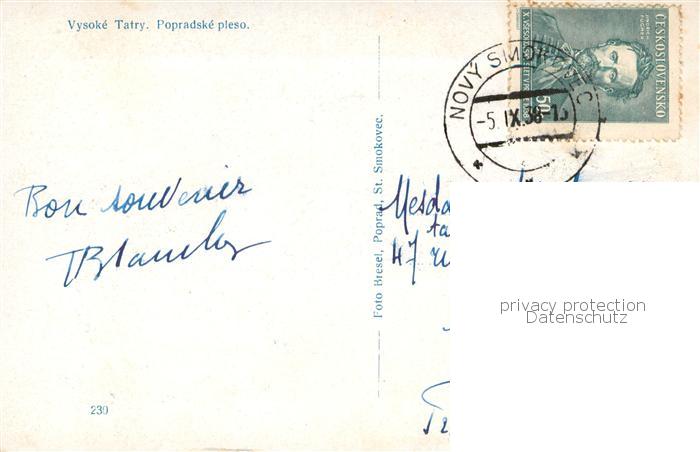 Vysoké Tatry. Popradské pleso.
ČESKOSLOVENSKO
JINDŘICH FÜGNER
50
NOVÝ SMOKOVEC
-5. IX. 38-15
Bon souvenir
Foto Bresel, Poprad, St. Smokovec.
Mesda
47 ru
privacy protection
Datenschutz
239